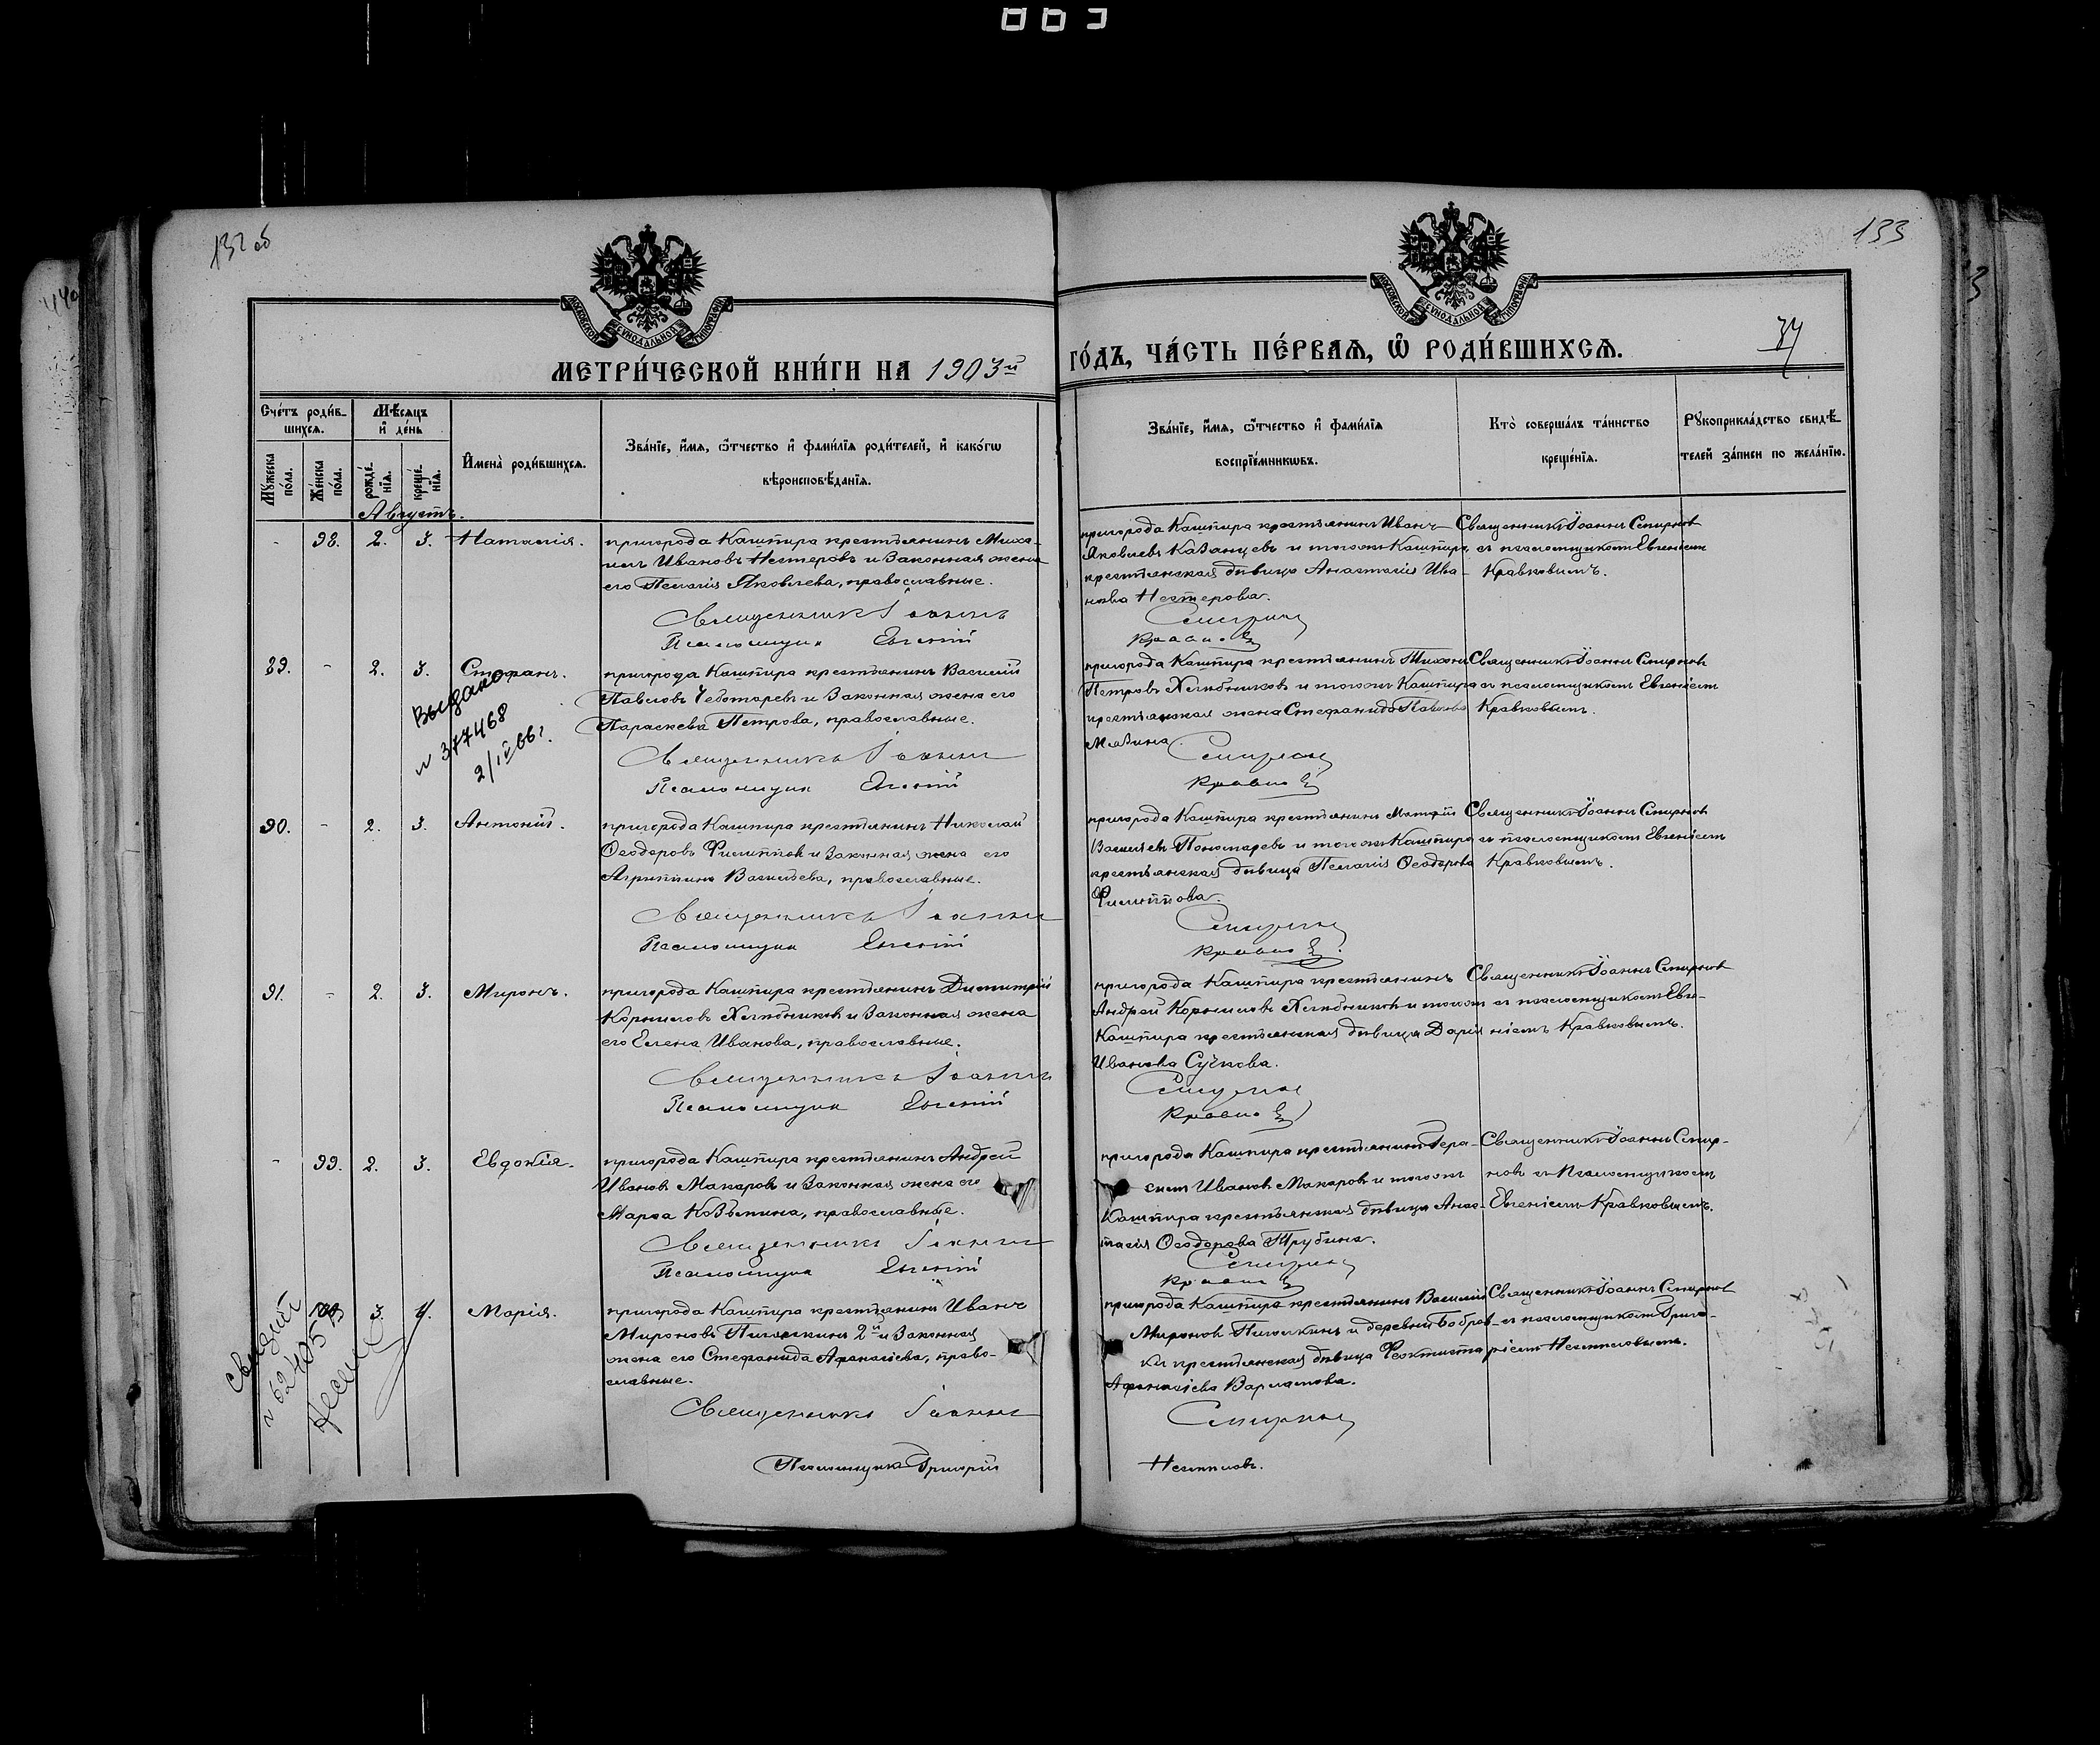 132 об
133
МОСКОВСКОЙ СѴНОДАЛЬНОЙ ТИПОГРАФІИ
МОСКОВСКОЙ СѴНОДАЛЬНОЙ ТИПОГРАФІИ
МЕТРИ́ЧЕСКОЙ КНИ́ГИ НА 1903й
ГО́ДЪ, ЧА́СТЬ ПЕ́РВАѦ, Ѽ РОДИ́ВШИХСѦ.
Сче́тъ роди́в-
шихсѧ.
Мꙋ́жеска
по́ла.
Же́нска
по́ла.
Мѣ́сѧцъ
и҆ де́нь
рожде́-
нїѧ.
креще́-
нїѧ.
И҆мена̀ роди́вшихсѧ.
Зва́нїе, и҆́мѧ, ѻ҆́тчество и҆ фами́лїѧ роди́телей, и҆ како́гѡ
вѣроисповѣ́данїѧ.
Зва́нїе, и҆́мѧ, ѻ҆́тчество и҆ фами́лїѧ
воспрїе́мникѡвъ.
Кто̀ соверша́лъ та́инство
креще́нїѧ.
Рꙋкоприкла́дство свидѣ́-
телей за́писи по жела́нїю.
Августъ.
- 98. 2. 3. Наталія.
пригорода Кашпира крестьянинъ Миха-
илъ Ивановъ Нестеровъ и законная жена
его Пелагія Яковлева, православные.
Священникъ Іоаннъ
Псаломщикъ Евгеній
пригорода Кашпира крестьянинъ Иванъ
Яковлевъ Казанцевъ и тогожъ Кашпира
крестьянская дѣвица Анастасія Ива-
нова Нестерова.
Смирновъ
Кравковъ
Священникъ Іоаннъ Смирновъ
съ псаломщикомъ Евгеніемъ
Кравковымъ.
89. - 2. 3. Стефанъ.
Выдано
№ 377468
2/IV 66 г.
пригорода Кашпира крестьянинъ Василій
Павловъ Чеботаревъ и законная жена его
Параскева Петрова, православные.
Священникъ Іоаннъ
Псаломщикъ Евгеній
пригорода Кашпира крестьянинъ Тихонъ
Петровъ Хлѣбниковъ и тогожъ Кашпира
крестьянская жена Стефанида Павлова
Смирновъ
Кравковъ
Священникъ Іоаннъ Смирновъ
съ псаломщикомъ Евгеніемъ
Кравковымъ.
90. - 2. 3. Антоній.
пригорода Кашпира крестьянинъ Николай
Ѳеодоровъ Филипповъ и законная жена его
Агриппина Васильева, православные.
Священникъ Іоаннъ
Псаломщикъ Евгеній
пригорода Кашпира крестьянинъ Матѳій
Васильевъ Пономаревъ и тогожъ Кашпира
крестьянская дѣвица Пелагія Ѳеодорова
Филиппова.
Смирновъ
Кравковъ
Священникъ Іоаннъ Смирновъ
съ псаломщикомъ Евгеніемъ
Кравковымъ.
91. - 2. 3. Миронъ.
пригорода Кашпира крестьянинъ Димитрій
Корниловъ Хлѣбниковъ и законная жена
его Елена Иванова, православные.
Священникъ Іоаннъ
Псаломщикъ Евгеній
пригорода Кашпира крестьянинъ
Андрей Корниловъ Хлѣбниковъ и тогожъ
Кашпира крестьянская дѣвица Дарія
Иванова Сучкова.
Смирновъ
Кравковъ
Священникъ Іоаннъ Смирновъ
съ псаломщикомъ Евге-
ніемъ Кравковымъ.
- 99. 2. 3. Евдокія.
пригорода Кашпира крестьянинъ Андрей
Ивановъ Макаровъ и законная жена его
Марѳа Козьмина, православные.
Священникъ Іоаннъ
Псаломщикъ Евгеній
пригорода Кашпира крестьянинъ Гера-
симъ Ивановъ Макаровъ и тогожъ
Кашпира крестьянская дѣвица Анас-
тасія Ѳеодорова Трубина.
Смирновъ
Кравковъ
Священникъ Іоаннъ Смир-
новъ съ псаломщикомъ
Евгеніемъ Кравковымъ.
100 3. 4. Марія.
пригорода Кашпира крестьянинъ Иванъ
Мироновъ Пигалкинъ 2й и законная
жена его Стефанида Аѳанасіева, право-
славные.
Священникъ Іоаннъ
Псаломщикъ Григорій
пригорода Кашпира крестьянинъ Василій
Мироновъ Пигалкинъ и деревни Бобров-
ки крестьянская дѣвица Ѳеоктиста
Аѳанасіева Варламова.
Смирновъ
Священникъ Іоаннъ Смирновъ
съ псаломщикомъ Григо-
ріемъ